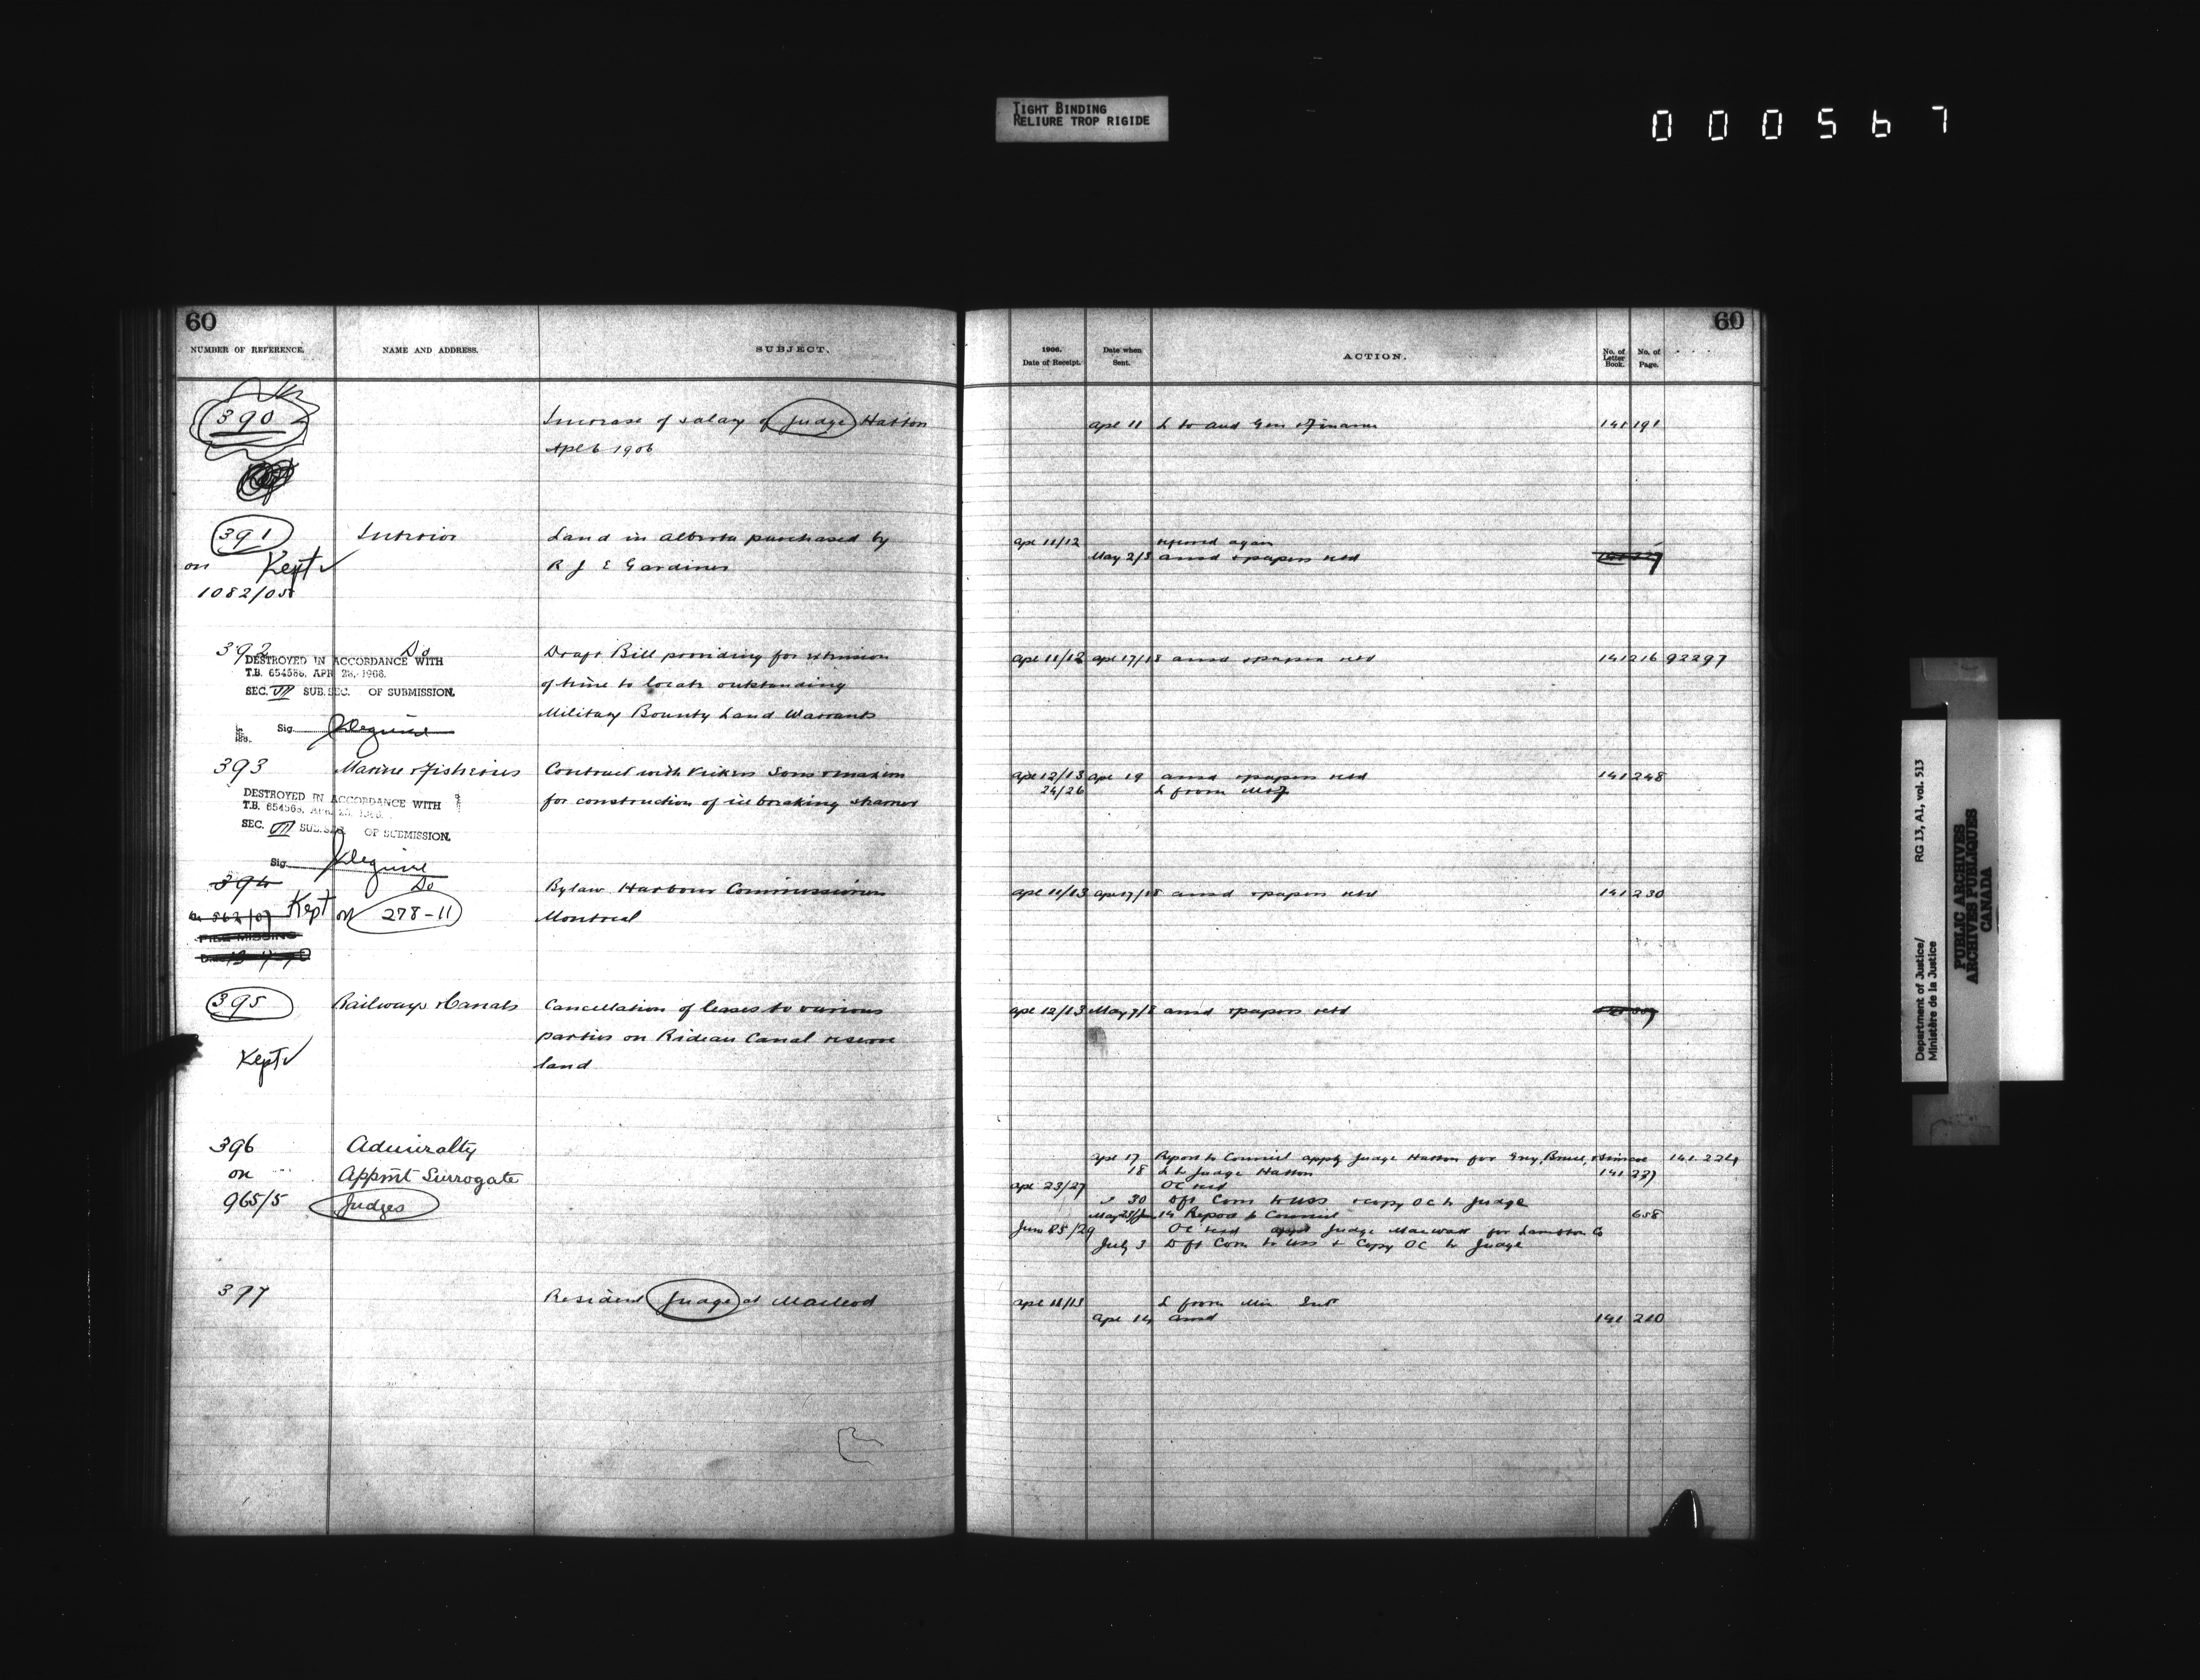 TIGHT BINDING
RELIURE TROP RIGIDE
000567
60
NUMBER OF REFERENCE. NAME AND ADDRESS. SUBJECT.
390 Increase of salary of Judge Hatton
Apl 6 1906
391 Interior Land in Alberta purchased by
on Kept R J E Gardiner
1082/05
392 Do Draft Bill providing for extension
DESTROYED IN ACCORDANCE WITH
T.B. 654566, APR 28, 1966.
of time to locate outstanding
SEC. VII SUB.SEC. OF SUBMISSION.
Military Bounty Land Warrants
Sig.
393 Marine & Fisheries Contract with Vickers Sons & Maxim
DESTROYED IN ACCORDANCE WITH
for construction of ice breaking steamer
SEC. VII SUB.SEC. OF SUBMISSION.
Sig.
394 Do Bylaw Harbour Commissioners
Kept on 278-11 Montreal
FILE MISSING
395 Railways & Canals Cancellation of leases to various
parties on Rideau Canal reserve
Kept land
396 Admiralty
on Appmt Surrogate
965/5 Judges
397 Resident Judge at Macleod
60
1906. Date of Receipt. Date when Sent. ACTION. No. of Letter Book. No. of Page.
Apl 11 L to Aud Gen & Finance 141 191
Apl 11/12 referred again
May 2/3 ansd & papers retd
Apl 11/12 Apl 17/18 ansd & papers retd 141 216 92297
Apl 12/13 Apl 19 ansd & papers retd 141 248
24/26 L from M&F
Apl 11/13 Apl 17/18 ansd & papers retd 141 230
Apl 12/13 May 7/8 ansd & papers retd
Apl 17 Report to Council apptg Judge Hatton for Grey, Bruce, & Simcoe 141 224
18 L to Judge Hatton 141 237
Apl 23/27 OC recd
" 30 Dft Com to USS & copy OC to Judge
14 Report to Council 658
OC recd appt Judge MacWatt for Lambton Co
July 3 Dft Com to USS & Copy OC to Judge
L from Min Int
Apl 14 ansd 141 210
Department of Justice/
Ministère de la Justice
RG 13, A1, vol. 513
PUBLIC ARCHIVES
ARCHIVES PUBLIQUES
CANADA